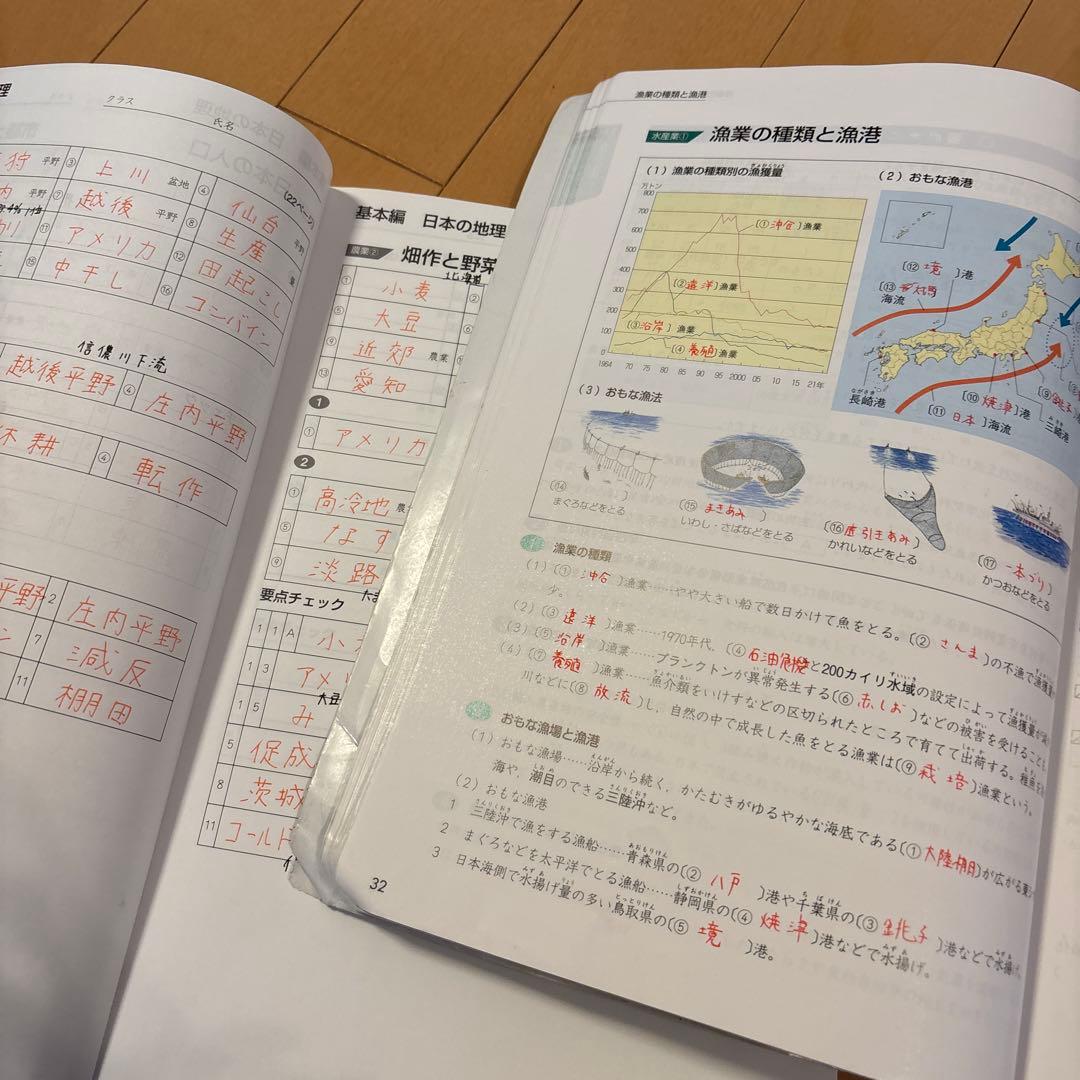 理
クラス
氏名
(22ページ)
狩 平野 ③ 上川 盆地 ④ 仙台 平野
平野 ⑦ 越後 平野 ⑧ 生産
⑪ アメリカ ⑫ 田起こし
⑮ 中干し ⑯ コンバイン
信濃川下流
越後平野 ④ 庄内平野
耕 ④ 転作
平野 2 庄内平野
7 減反
11 棚田
基本編 日本の地理
農業② 畑作と野菜
北海道
① 小麦 ②
⑤ 大豆 ⑥
⑨ 近郊 農業
⑬ 愛知
1
① アメリカ
2
① 高冷地 農
⑤ なす
⑨ 淡路
たま
要点チェック
1 1 A 小
1 3 アメリ
大豆
1 5 み
5 促成
8 茨城
11 コールド
漁業の種類と漁港
水産業① 漁業の種類と漁港
(1) 漁業の種類別の漁獲量
ぎょかくりょう
万トン
800
700
600
500
400
300
200
100
0
1964 70 75 80 85 90 95 2000 05 10 15 21年
〔① 沖合 〕漁業
〔② 遠洋 〕漁業
〔③ 沿岸 〕漁業
〔④ 養殖 〕漁業
(2) おもな漁港
〔⑫ 境 〕港
〔⑬ 〕海流
ながさき
長崎港
〔⑩ 焼津 〕港
〔⑪ 日本 〕海流
〔⑨ 銚子
みさき
三崎港
(3) おもな漁法
〔⑭ 〕
まぐろなどをとる
〔⑮ まきあみ 〕
いわし・さばなどをとる
〔⑯ 底引きあみ 〕
かれいなどをとる
〔⑰ 一本づり 〕
かつおなどをとる
漁業の種類
(1)〔① 沖合 〕漁業……やや大きい船で数日かけて魚をとる。〔② さんま 〕の不漁で漁獲量が
少。
(2)〔③ 遠洋 〕漁業……1970年代、〔④ 石油危機 と200カイリ水域の設定によって漁獲量が
(3)〔⑤ 沿岸 〕漁業……プランクトンが異常発生する〔⑥ 赤しお 〕などの被害を受けること
(4)〔⑦ 養殖 〕漁業……魚介類をいけすなどの区切られたところで育てて出荷する。稚魚を
川などに〔⑧ 放流 〕し、自然の中で成長した魚をとる漁業は〔⑨ 栽培 〕漁業という。
おもな漁場と漁港
(1) おもな漁場……沿岸から続く、かたむきがゆるやかな海底である〔① 大陸棚 〕が広がる東シ
海や、潮目のできる三陸沖など。
(2) おもな漁港
1 三陸沖で漁をする漁船……青森県の〔② 八戸 〕港や千葉県の〔③ 銚子 〕港などで水揚げ。
2 まぐろなどを太平洋でとる漁船……静岡県の〔④ 焼津 〕港などで水揚げ。
3 日本海側で水揚げ量の多い鳥取県の〔⑤ 境 〕港。
32